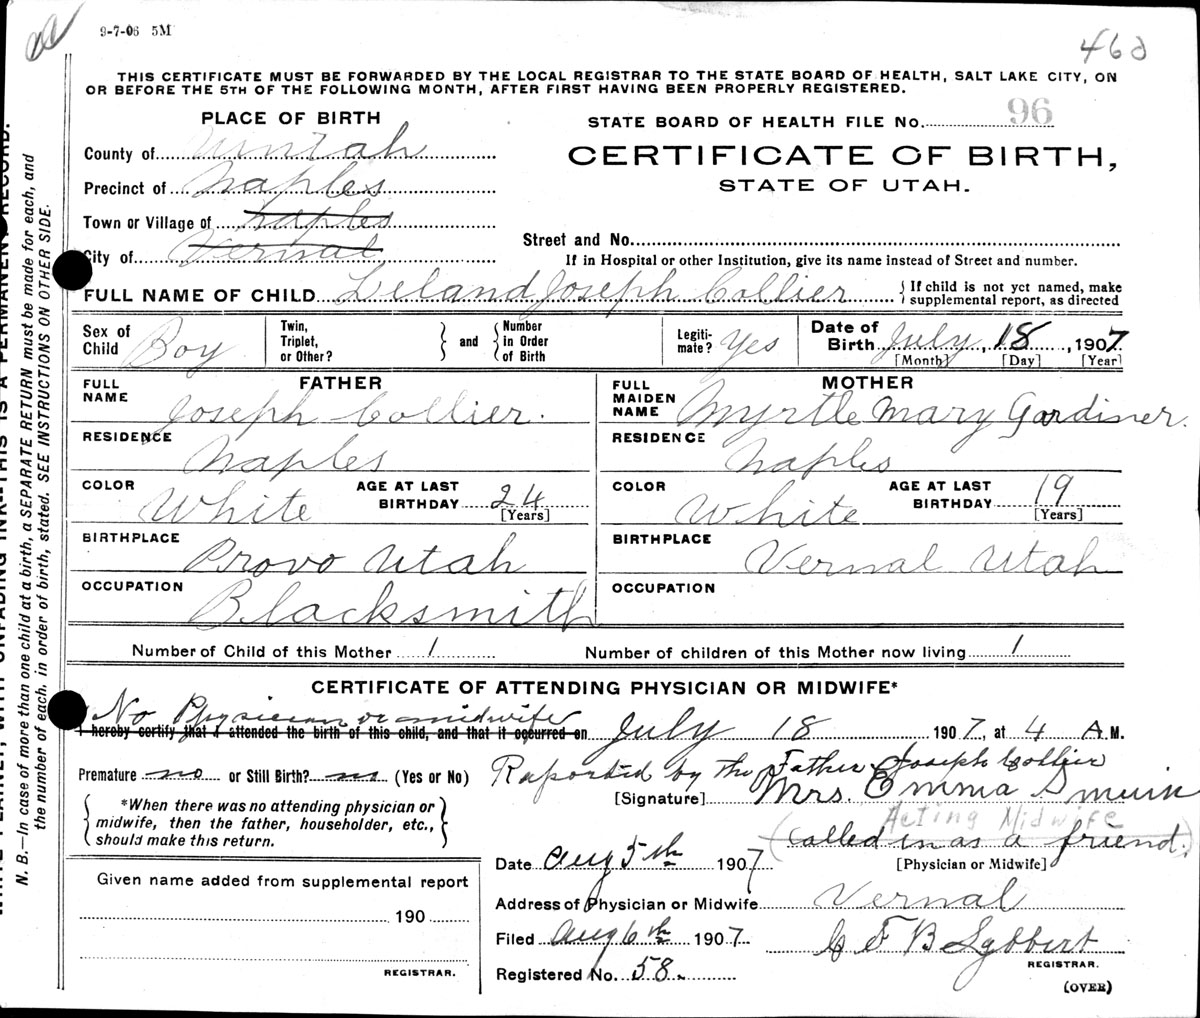 9-7-06 5M
THIS CERTIFICATE MUST BE FORWARDED BY THE LOCAL REGISTRAR TO THE STATE BOARD OF HEALTH, SALT LAKE CITY, ON
OR BEFORE THE 5TH OF THE FOLLOWING MONTH, AFTER FIRST HAVING BEEN PROPERLY REGISTERED.
PLACE OF BIRTH
STATE BOARD OF HEALTH FILE No. 96
County of Uintah
CERTIFICATE OF BIRTH,
Precinct of Naples
STATE OF UTAH.
Town or Village of Naples
Street and No.
City of Vernal
If in Hospital or other Institution, give its name instead of Street and number.
FULL NAME OF CHILD Leland Joseph Collier { If child is not yet named, make supplemental report, as directed
Sex of Child Boy Twin, Triplet, or Other? } and { Number in Order of Birth Legiti-mate? Yes Date of Birth July 18, 1907
[Month] [Day] [Year]
FATHER MOTHER
FULL NAME Joseph Collier. FULL MAIDEN NAME Myrtle Mary Gardiner.
RESIDENCE Naples RESIDENCE Naples
COLOR White AGE AT LAST BIRTHDAY 24 [Years] COLOR White AGE AT LAST BIRTHDAY 19 [Years]
BIRTHPLACE Provo Utah BIRTHPLACE Vernal Utah
OCCUPATION Blacksmith OCCUPATION
Number of Child of this Mother 1 Number of children of this Mother now living 1
CERTIFICATE OF ATTENDING PHYSICIAN OR MIDWIFE*
No Physician or midwife
I hereby certify that I attended the birth of this child, and that it occurred on July 18 1907, at 4 A.M.
Premature no or Still Birth? no (Yes or No) Reported by the Father Joseph Collier
[Signature] Mrs. Emma Smuin
Acting Midwife
{ *When there was no attending physician or midwife, then the father, householder, etc., should make this return. }
(Called in as a friend.)
Date Aug 5th 1907 [Physician or Midwife]
Given name added from supplemental report
Address of Physician or Midwife Vernal
190
Filed Aug 6th 1907. C F B Lybbert
REGISTRAR.
REGISTRAR.
Registered No. 58.
(OVER)
N. B.—In case of more than one child at a birth, a SEPARATE RETURN must be made for each, and
the number of each, in order of birth, stated. SEE INSTRUCTIONS ON OTHER SIDE.